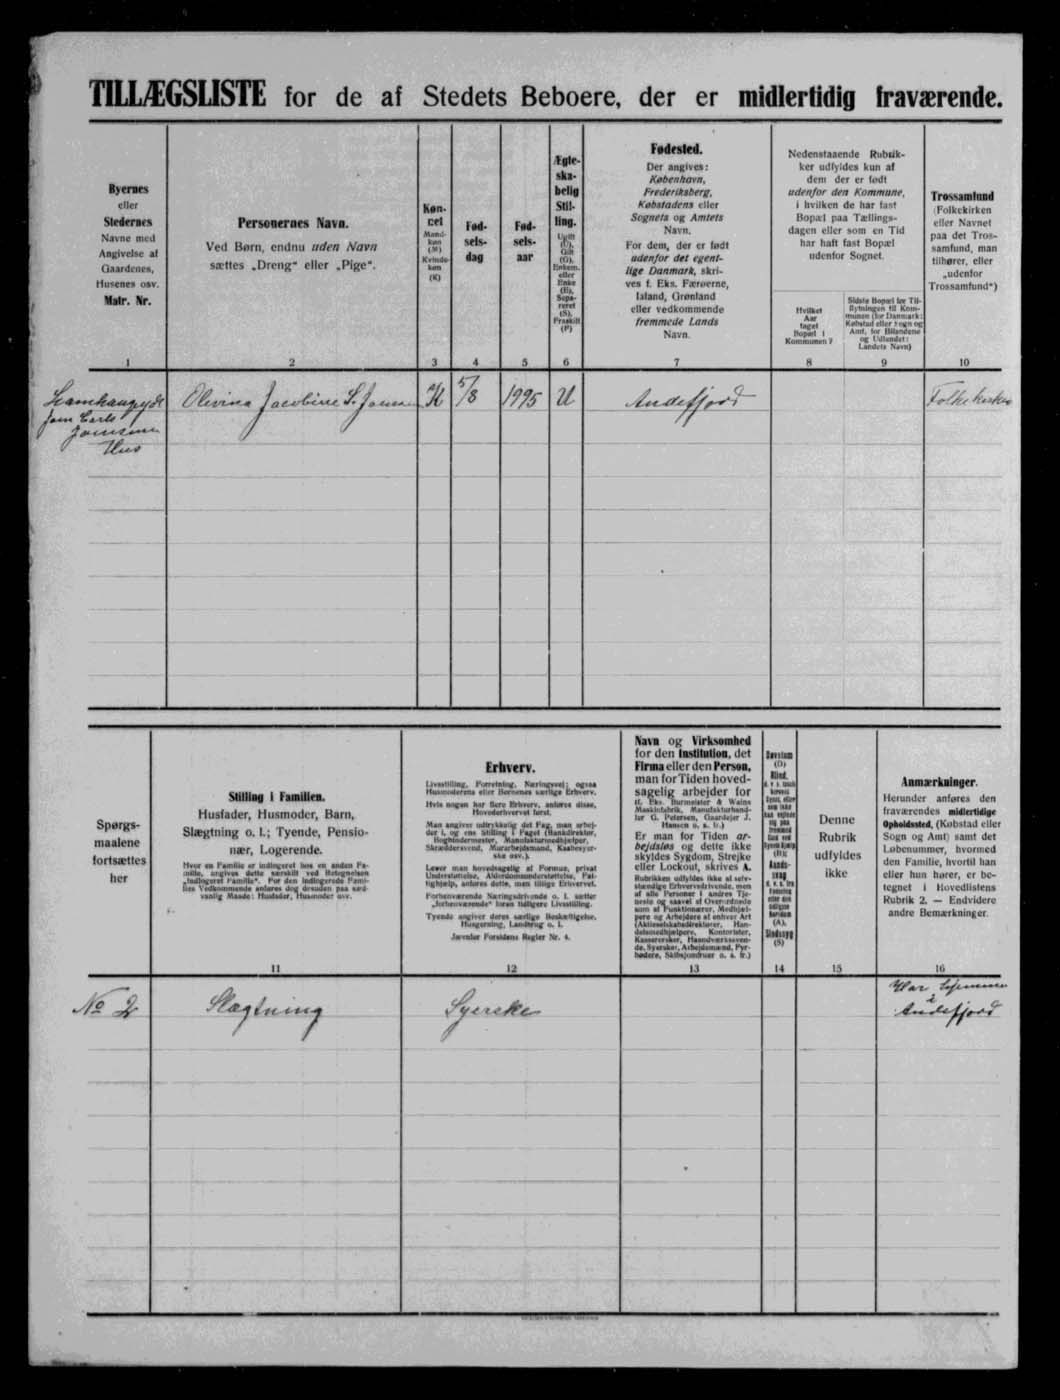 TILLÆGSLISTE for de af Stedets Beboere, der er midlertidig fraværende.
Byernes
eller
Stedernes
Navne med
Angivelse af
Gaardenes,
Husenes osv.
Matr. Nr.
Personernes Navn.
Ved Børn, endnu uden Navn
sættes „Dreng" eller „Pige".
Køn-
net
Mand-
køn
(M)
Kvinde-
køn
(K)
Fød-
sels-
dag
Fød-
sels-
aar
Ægte-
ska-
belig
Stil-
ling.
Ugift
(U),
Gift
(G),
Enkem.
eller
Enke
(E),
Sepa-
reret
(S),
Fraskilt
(F)
Fødested.
Der angives:
København,
Frederiksberg,
Købstadens eller
Sognets og Amtets
Navn.
For dem, der er født
udenfor det egent-
lige Danmark, skri-
ves f. Eks. Færøerne,
Island, Grønland
eller vedkommende
fremmede Lands
Navn.
Nedenstaaende Rubrik-
ker udfyldes kun af
dem der er født
udenfor den Kommune,
i hvilken de har fast
Bopæl paa Tællings-
dagen eller som en Tid
har haft fast Bopæl
udenfor Sognet.
Hvilket
Aar
taget
Bopæl i
Kommunen?
Sidste Bopæl før Til-
flytningen til Kom-
munen (for Danmark:
Købstad eller Sogn og
Amt, for Bilandene
og Udlandet:
Landets Navn)
Trossamfund
(Folkekirken
eller Navnet
paa det Tros-
samfund, man
tilhører, eller
„udenfor
Trossamfund")
1 2 3 4 5 6 7 8 9 10
Olivina Jacobine S. Joensen K 5/8 1995 U Andefjord Folkekirken
Joen Carls
Joensens
Hus
Spørgs-
maalene
fortsættes
her
Stilling i Familien.
Husfader, Husmoder, Barn,
Slægtning o. l.; Tyende, Pensio-
nær, Logerende.
Hvor en Familie er indlogeret hos en anden Fa-
milie, angives dette særskilt ved Betegnelsen
„indlogeret Familie". For den indlogerede Fami-
lies Vedkommende anføres dog desuden paa sæd-
vanlig Maade: Husfader, Husmoder osv.
Erhverv.
Livsstilling, Forretning, Næringsvej; ogsaa
Husmoderens eller Børnenes særlige Erhverv.
Hvis nogen har flere Erhverv, anføres disse,
Hovederhvervet først.
Man angiver udtrykkelig det Fag, man arbej-
der i, og ens Stilling i Faget (Bankdirektør,
Bogbindermester, Manufakturmedhjælper,
Skræddersvend, Murarbejdsmand, Kaabesyer-
ske osv.).
Lever man hovedsagelig af Formue, privat
Understøttelse, Alderdomsunderstøttelse, Fat-
tighjælp, anføres dette, men tillige Erhvervet.
Forhenværende Næringsdrivende o. l. sætter
„forhenværende" foran tidligere Livsstilling.
Tyende angiver deres særlige Beskæftigelse,
Husgerning, Landbrug o. l.
Jævnfør Forsidens Regler Nr. 4.
Navn og Virksomhed
for den Institution, det
Firma eller den Person,
man for Tiden hoved-
sagelig arbejder for
(f. Eks. Burmeister & Wains
Maskinfabrik, Manufakturhand-
ler G. Petersen, Gaardejer J.
Hansen o. s. fr.)
Er man for Tiden ar-
bejdsløs og dette ikke
skyldes Sygdom, Strejke
eller Lockout, skrives A.
Rubrikken udfyldes ikke af selv-
stændige Erhvervsdrivende, men
af alle Personer i andres Tje-
neste og saavel af Overordnede
som af Funktionærer, Medhjæl-
pere og Arbejdere af enhver Art
(Aktieselskabsdirektører, Han-
delsmedhjælpere, Kontorister,
Kasserersker, Haandværkssven-
de, Syersker, Arbejdsmænd, Fyr-
bødere, Skibsjomfruer o. s. fr.)
Døvstum
(D)
Blind,
(B);
Aands-
svag
(A),
Sindssyg
(S)
Denne
Rubrik
udfyldes
ikke
Anmærkninger.
Herunder anføres den
fraværendes midlertidige
Opholdssted, (Købstad eller
Sogn og Amt) samt det
Løbenummer, hvormed
den Familie, hvortil han
eller hun hører, er be-
tegnet i Hovedlistens
Rubrik 2. — Endvidere
andre Bemærkninger.
11 12 13 14 15 16
No 2 Slægtning Syerske Har Hjemme
i
Andefjord